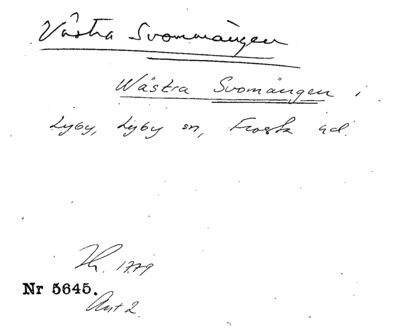 Västra Svommängen
Wästra Svomängen i
Lyby, Lyby sn, Frosta hd.
Th. 1779
Nr 5645.
Akt 2.